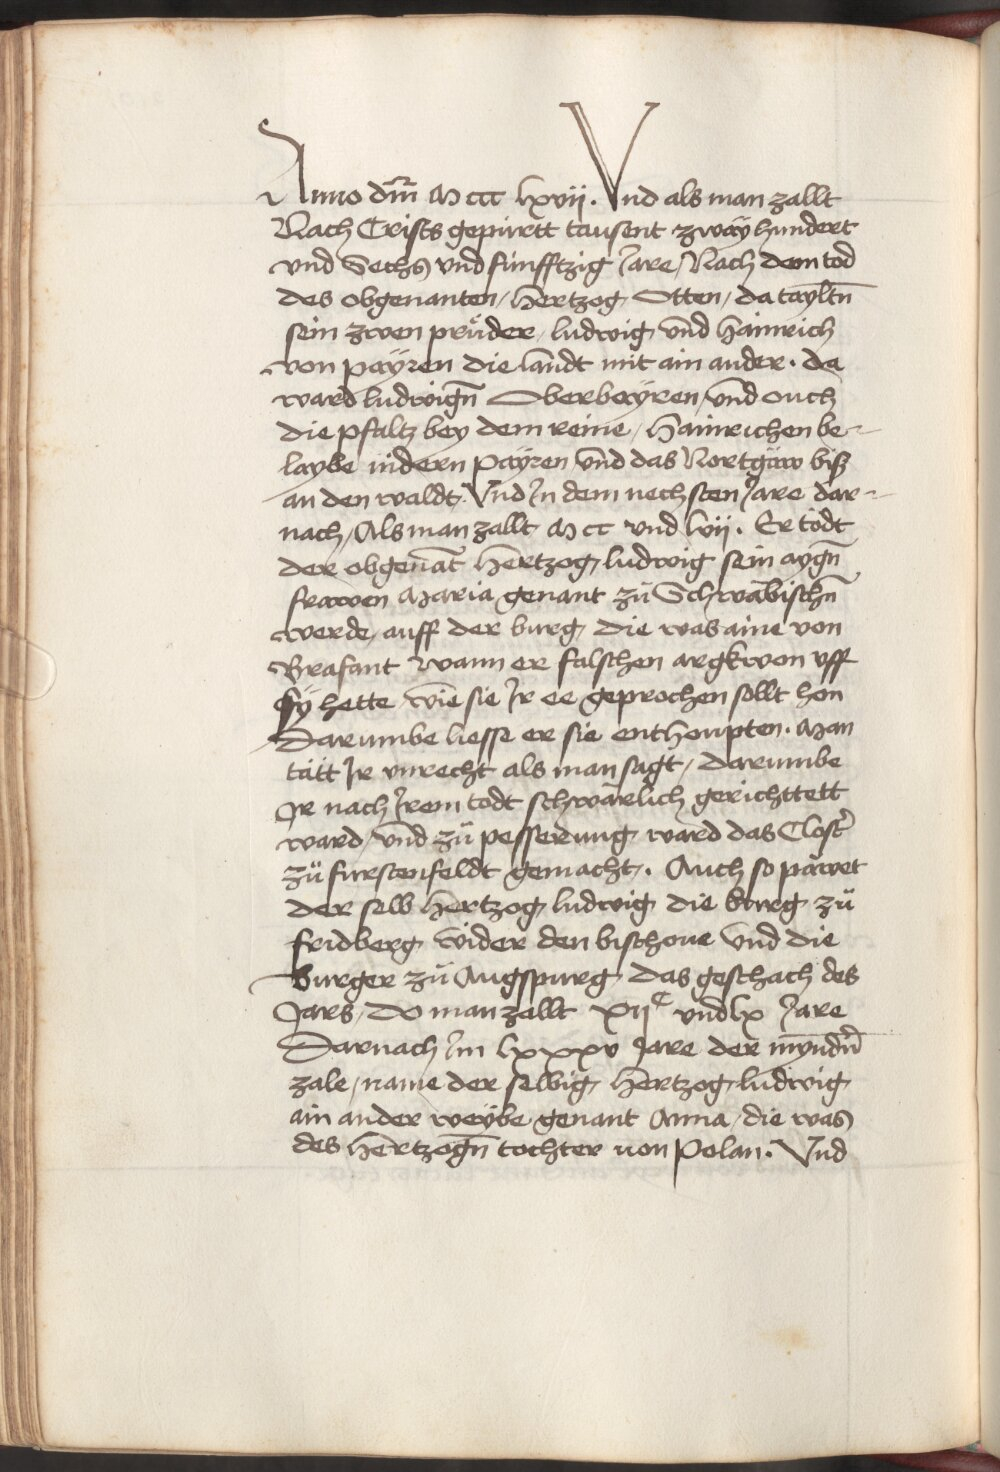 Anno dm̄ M ccc lxvii. Vnd als man zallt
Nach Crists gepürtt tausent zwaÿhundert
vnd Sechs vnd fünfftzig Jare, Nach dem tod
des obgenanten, Hertzog Otten, da tayltn̄
sein zwen prüder, ludwig vnd Hainrich
von payren die landt mit ain ander. da
ward ludwign̄ Oberbayren, vnd ouch
die pfaltz bey dem reine, Hainrichen be-
laybe indern payren vnd das Nortgaw biß
an den waldt. Vnd Jn dem nechsten Jare dar-
nach, Als man zallt M cc vnd lvii. Er tödt
der obgenāt Hertzog ludwig sein aygn̄
frawen Maria genant zů Schwäbischn̄
werde, auff der burg, die was aine von
Brafant wann er falschen argkwon vff
sÿ hette wie sie Jr ee geprochen sollt hon
Darumbe liesse er sie enthoupten. Man
tätt Jr vnrecht als man sagt, darumbe
Er nach Jrem todt schwärlich gerichttett
ward, vnd zů pesserung ward das Clost̄
zů furstenfeldt gemacht. Auch so pawet
der selb Hertzog ludwig die burg zů
fridberg wider den bischoue vnd die
Burger zů Augspurg das geschach des
Jars, do man zallt xii^c vnd lx Jare
Darnach Jm lxxxv Jare der myndn̄
zale, name der selbig Hertzog ludwig
ain ander weybe genant Anna, die was
des Hertzogn̄ tochter von Polan. Vnd